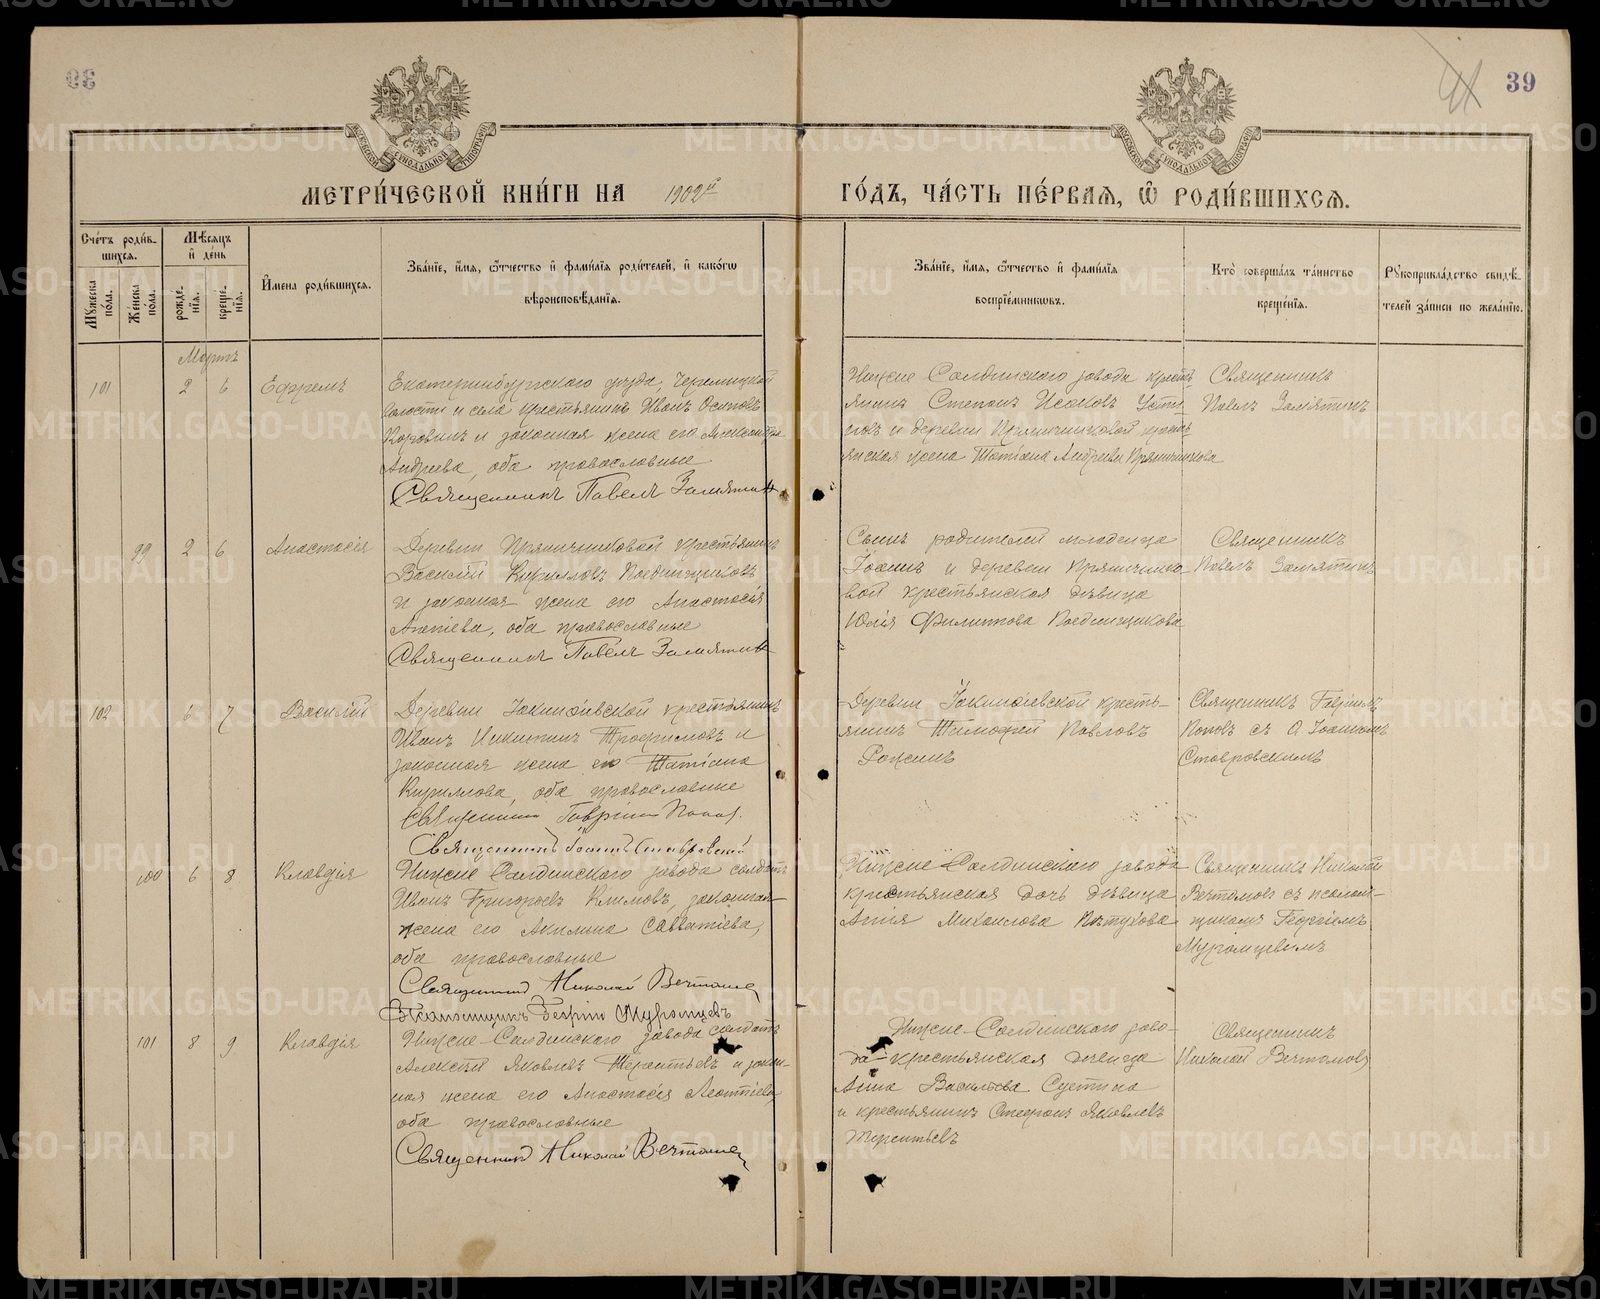 39
МЕТРИ́ЧЕСКОЙ КНИ́ГИ НА 1902й ГО́ДЪ, ЧА́СТЬ ПЕ́РВАѦ, Ѽ РОДИ́ВШИХСѦ.
Сче́тъ роди́в-
шихсѧ.
Мꙋжеска по́ла.
Же́нска по́ла.
Мѣ́сѧцъ
и҆ де́нь
рожде́-
нїѧ.
креще́-
нїѧ.
И҆мена роди́вшихсѧ.
Зва́нїе, и҆́мѧ, ѻ҆́тчество и҆ фами́лїѧ роди́телей, и҆ како́гѡ
вѣроисповѣ́данїѧ.
Зва́нїе, и҆́мѧ, ѻ҆́тчество и҆ фами́лїѧ
воспрїе́мникѡвъ.
Кто̀ соверша́лъ та́инство
креще́нїѧ.
Рꙋкоприкла́дство свидѣ́-
телей за́писи по жела́нїю.
Мартъ
101 2 6 Ефремъ
Екатеринбургскаго уѣзда, Черемисской
волости и села крестьянинъ Иванъ Осиповъ
и законная жена его Александра
Андреева, оба православные
Священникъ Павелъ Замятин
Нижне Салдинскаго завода кресть-
янинъ Степанъ Исаковъ Усти-
новъ и деревни Пряничниковой кресть-
янская жена Татіана Андреева Пряничникова
Священникъ
Павелъ Замятинъ
99 2 6 Анастасія
Деревни Пряничниковой крестьянинъ
Василій Кирилловъ Поединщиковъ
и законная жена его Анастасія
оба православные
Священникъ Павелъ Замятин
Сынъ родителей младенца
Іоаннъ и деревни Прянични-
вой крестьянская дѣвица
Юлія Филиппова Поединщикова
Священникъ
Павелъ Замятинъ
102 6 7 Василій
Деревни Іокиноіевской крестьянинъ
Иванъ Никитинъ Трофимовъ и
законная жена его Татіана
Кириллова, оба православные
Священникъ Гавріилъ Попов.
Священникъ Іоаннъ Ставровскій
Деревни Іокиноіевской кресть-
янинъ Тимофей Павловъ
Рожинъ
Священникъ Гавріилъ
Поповъ съ О. Іоанномъ
Ставровскимъ
100 6 8 Клавдія
Нижне Салдинскаго завода солдатъ
Иванъ Григорьевъ Климовъ, законная
жена его Акилина Савватіева,
оба православные
Священник Николай Вечтомов
Псаломщикъ Георгій Муромцевъ
Нижне Салдинскаго завода
крестьянская дочь дѣвица
Михаилова Пѣтухова
Священникъ Николай
Вечтомовъ съ псалом-
щикомъ Георгіемъ
Муромцевымъ
101 8 9 Клавдія
Нижне-Салдинскаго завода солдатъ
Алексѣй Яковлевъ Терентьевъ и закон-
ная жена его Анастасія Леонтіева,
оба православные
Священник Николай Вечтомов
Нижне-Салдинскаго заво-
да крестьянская дѣвица
Анна Васильева Суетина
и крестьянинъ Стефанъ Яковлевъ
Терентьевъ
Священникъ
Николай Вечтомовъ
METRIKI.GASO-URAL.RU